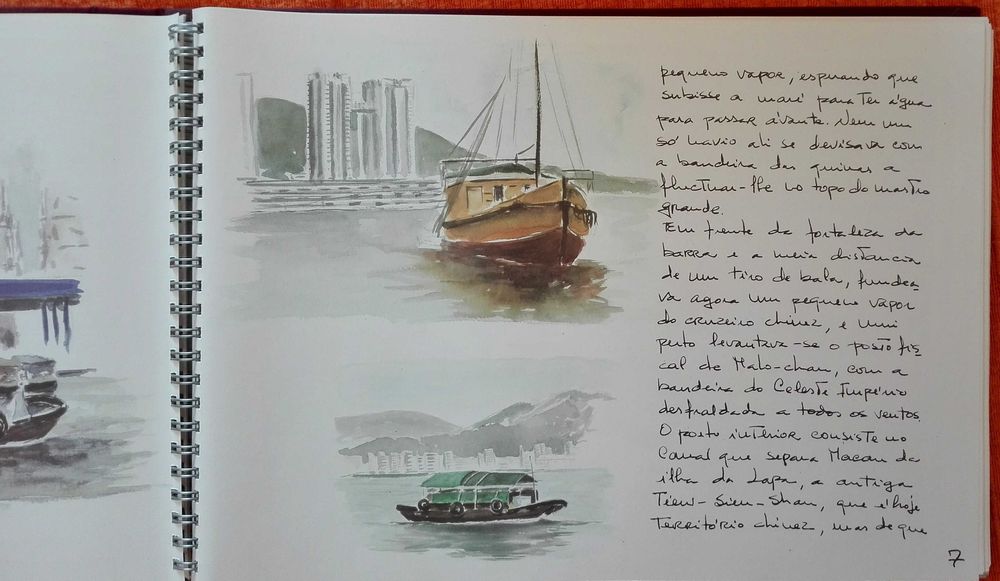 pequeno vapor, esperando que
subisse a maré para ter água
para passar ávante. Nem um
só navio ali se devisava com
a bandeira das quinas a
fluctuar-lhe no topo do mastro
grande.
Em frente da fortaleza da
barra e a meia distancia
de um tiro de bala, fundea-
va agora um pequeno vapor
do cruzeiro chinez, e mui
perto levantava-se o posto fis-
cal de Malo-chau, com a
bandeira do Celeste Império
desfraldada a todos os ventos.
O porto interior consiste no
Canal que separa Macau da
ilha da Lapa, a antiga
Tiew-Sien-Shan, que é hoje
território chinez, mas de que
7